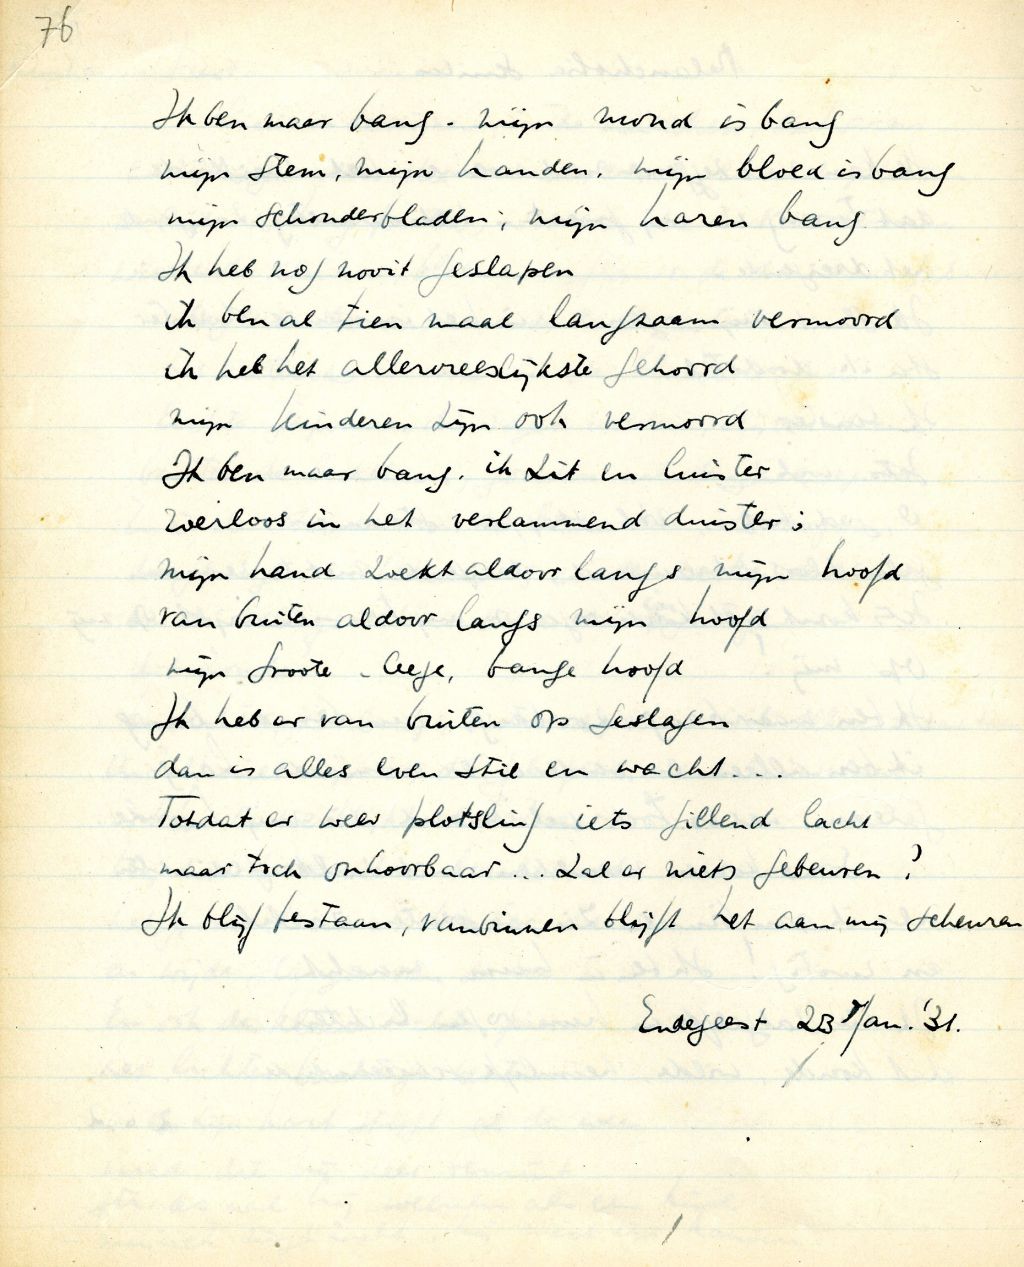 76
Ik ben maar bang - mijn mond is bang
mijn stem, mijn handen, mijn bloed is bang
mijn schouderbladen; mijn haren bang
Ik heb nog nooit geslapen
ik ben al tien maal langzaam vermoord
ik heb het allervreeslijkste gehoord
mijn kinderen zijn ook vermoord
Ik ben maar bang. ik zit en luister
weerloos in het verlammend duister;
mijn hand zoekt aldoor langs mijn hoofd
van buiten aldoor langs mijn hoofd
mijn groote - lege, bange hoofd
Ik heb er van buiten op geslagen
dan is alles even stil en wacht...
Totdat er weer plotsling iets gillend lacht
maar toch onhoorbaar... Zal er niets gebeuren?
Ik blijf bestaan, vanbinnen blijft het aan mij scheuren
Endegeest 23 Jan. '31.